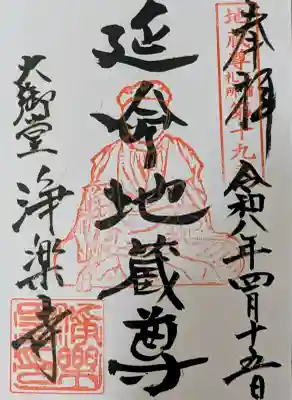 奉拝
地蔵尊
札所
十九
令和八年四月十五日
延命地蔵尊
大御堂
浄楽寺